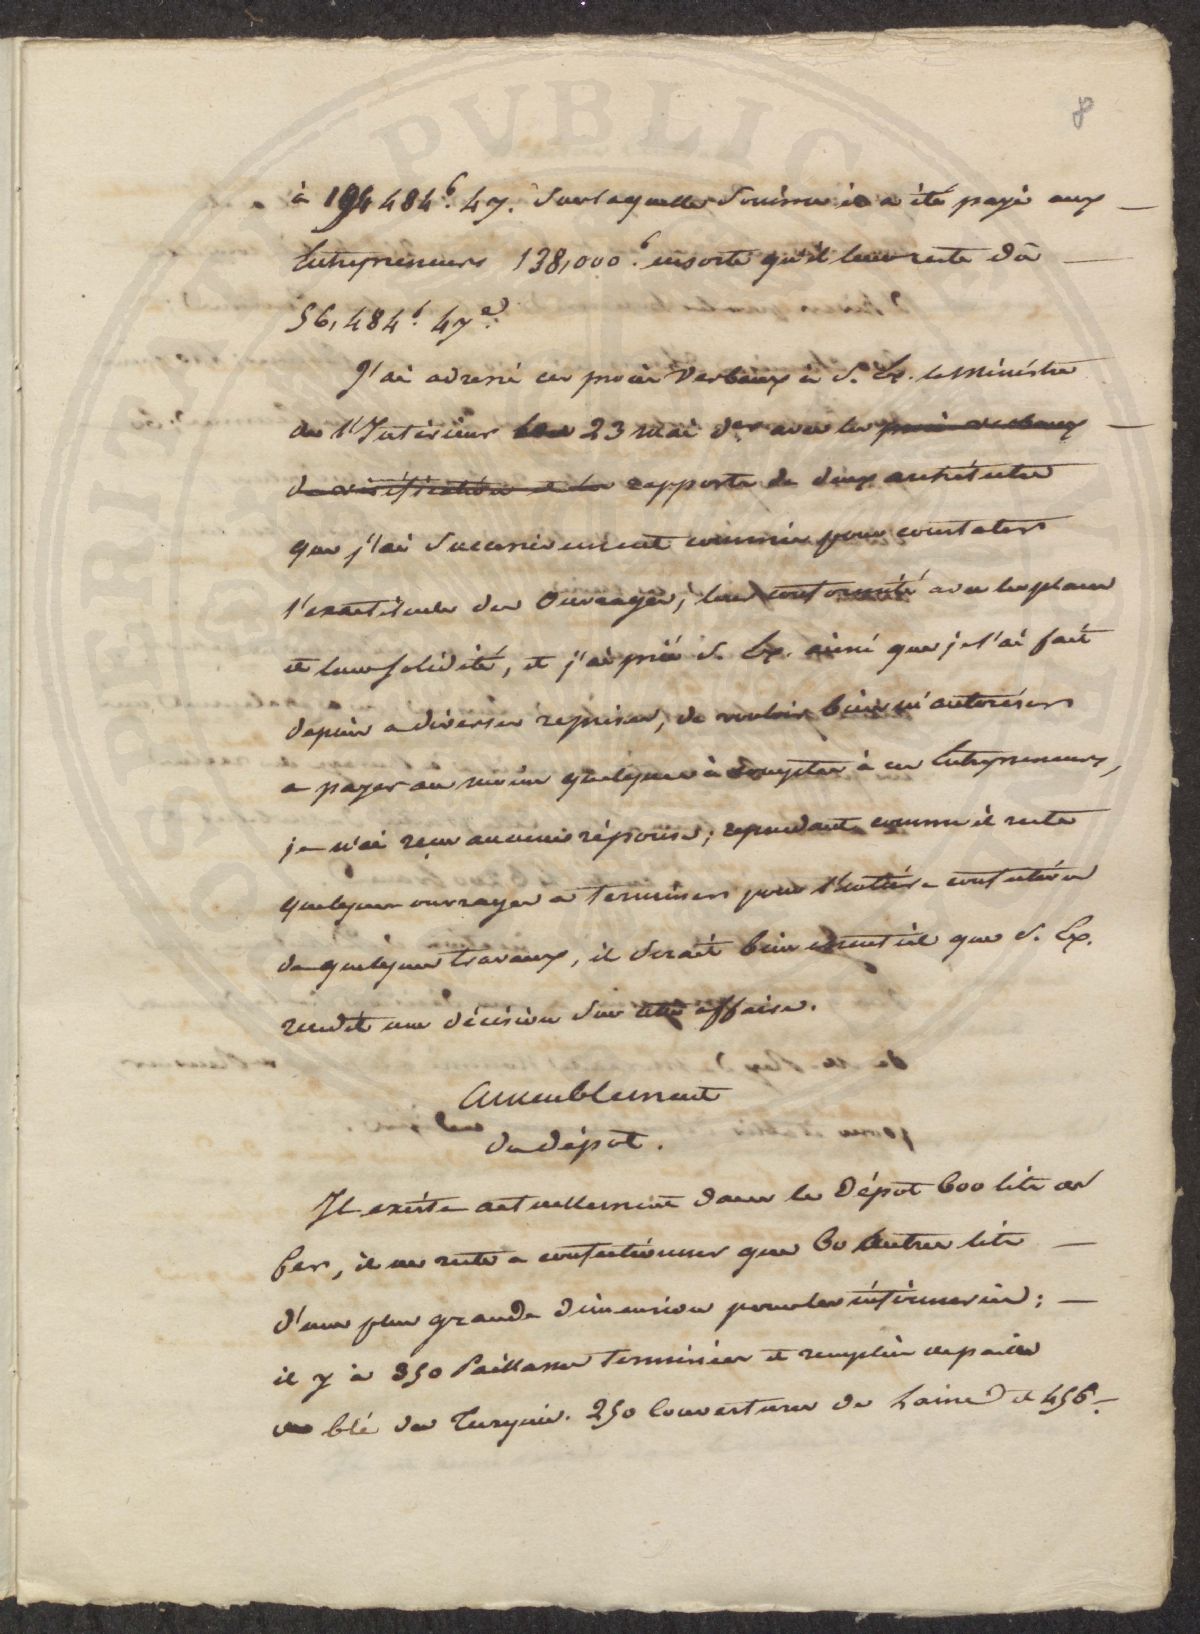 8
à 194 484f. 47. Sur laquelle Somme il a été payé aux
Entrepreneurs 138,000f. ensorte qu'il leur reste dû
56,484f. 47c.
J'ai adressé ces procès Verbaux à S. Ex. le Ministre
de l'Intérieur le 23 mai der avec les procès verbaux
de vérification et les rapports de deux architectes
que j'ai Successivement commis pour constater
l'exactitude des Ouvrages, leur conformité avec les plans
et leur Solidité, et j'ai prié S. Ex. ainsi que je l'ai fait
depuis a diverses reprises, de vouloir bien m'autoriser
a payer au moins quelques à comptes à ces Entrepreneurs,
je n'ai reçu aucune réponse; cependant comme il reste
quelques ouvrages a terminer pour l'entière confection
de quelques travaux, il serait bien essentiel que S. Ex.
rendit une décision sur cette affaire.
Ameublement
du dépôt.
Il existe actuellement dans le Dépôt 600 lits en
fer, il ne reste a confectionner que 60 Autres lits
d'une plus grande dimension pour les infirmeries;
il y à 350 Paillasses terminées et remplies de pailles
de blé de Turquie. 250 Couvertures de Laine et 456